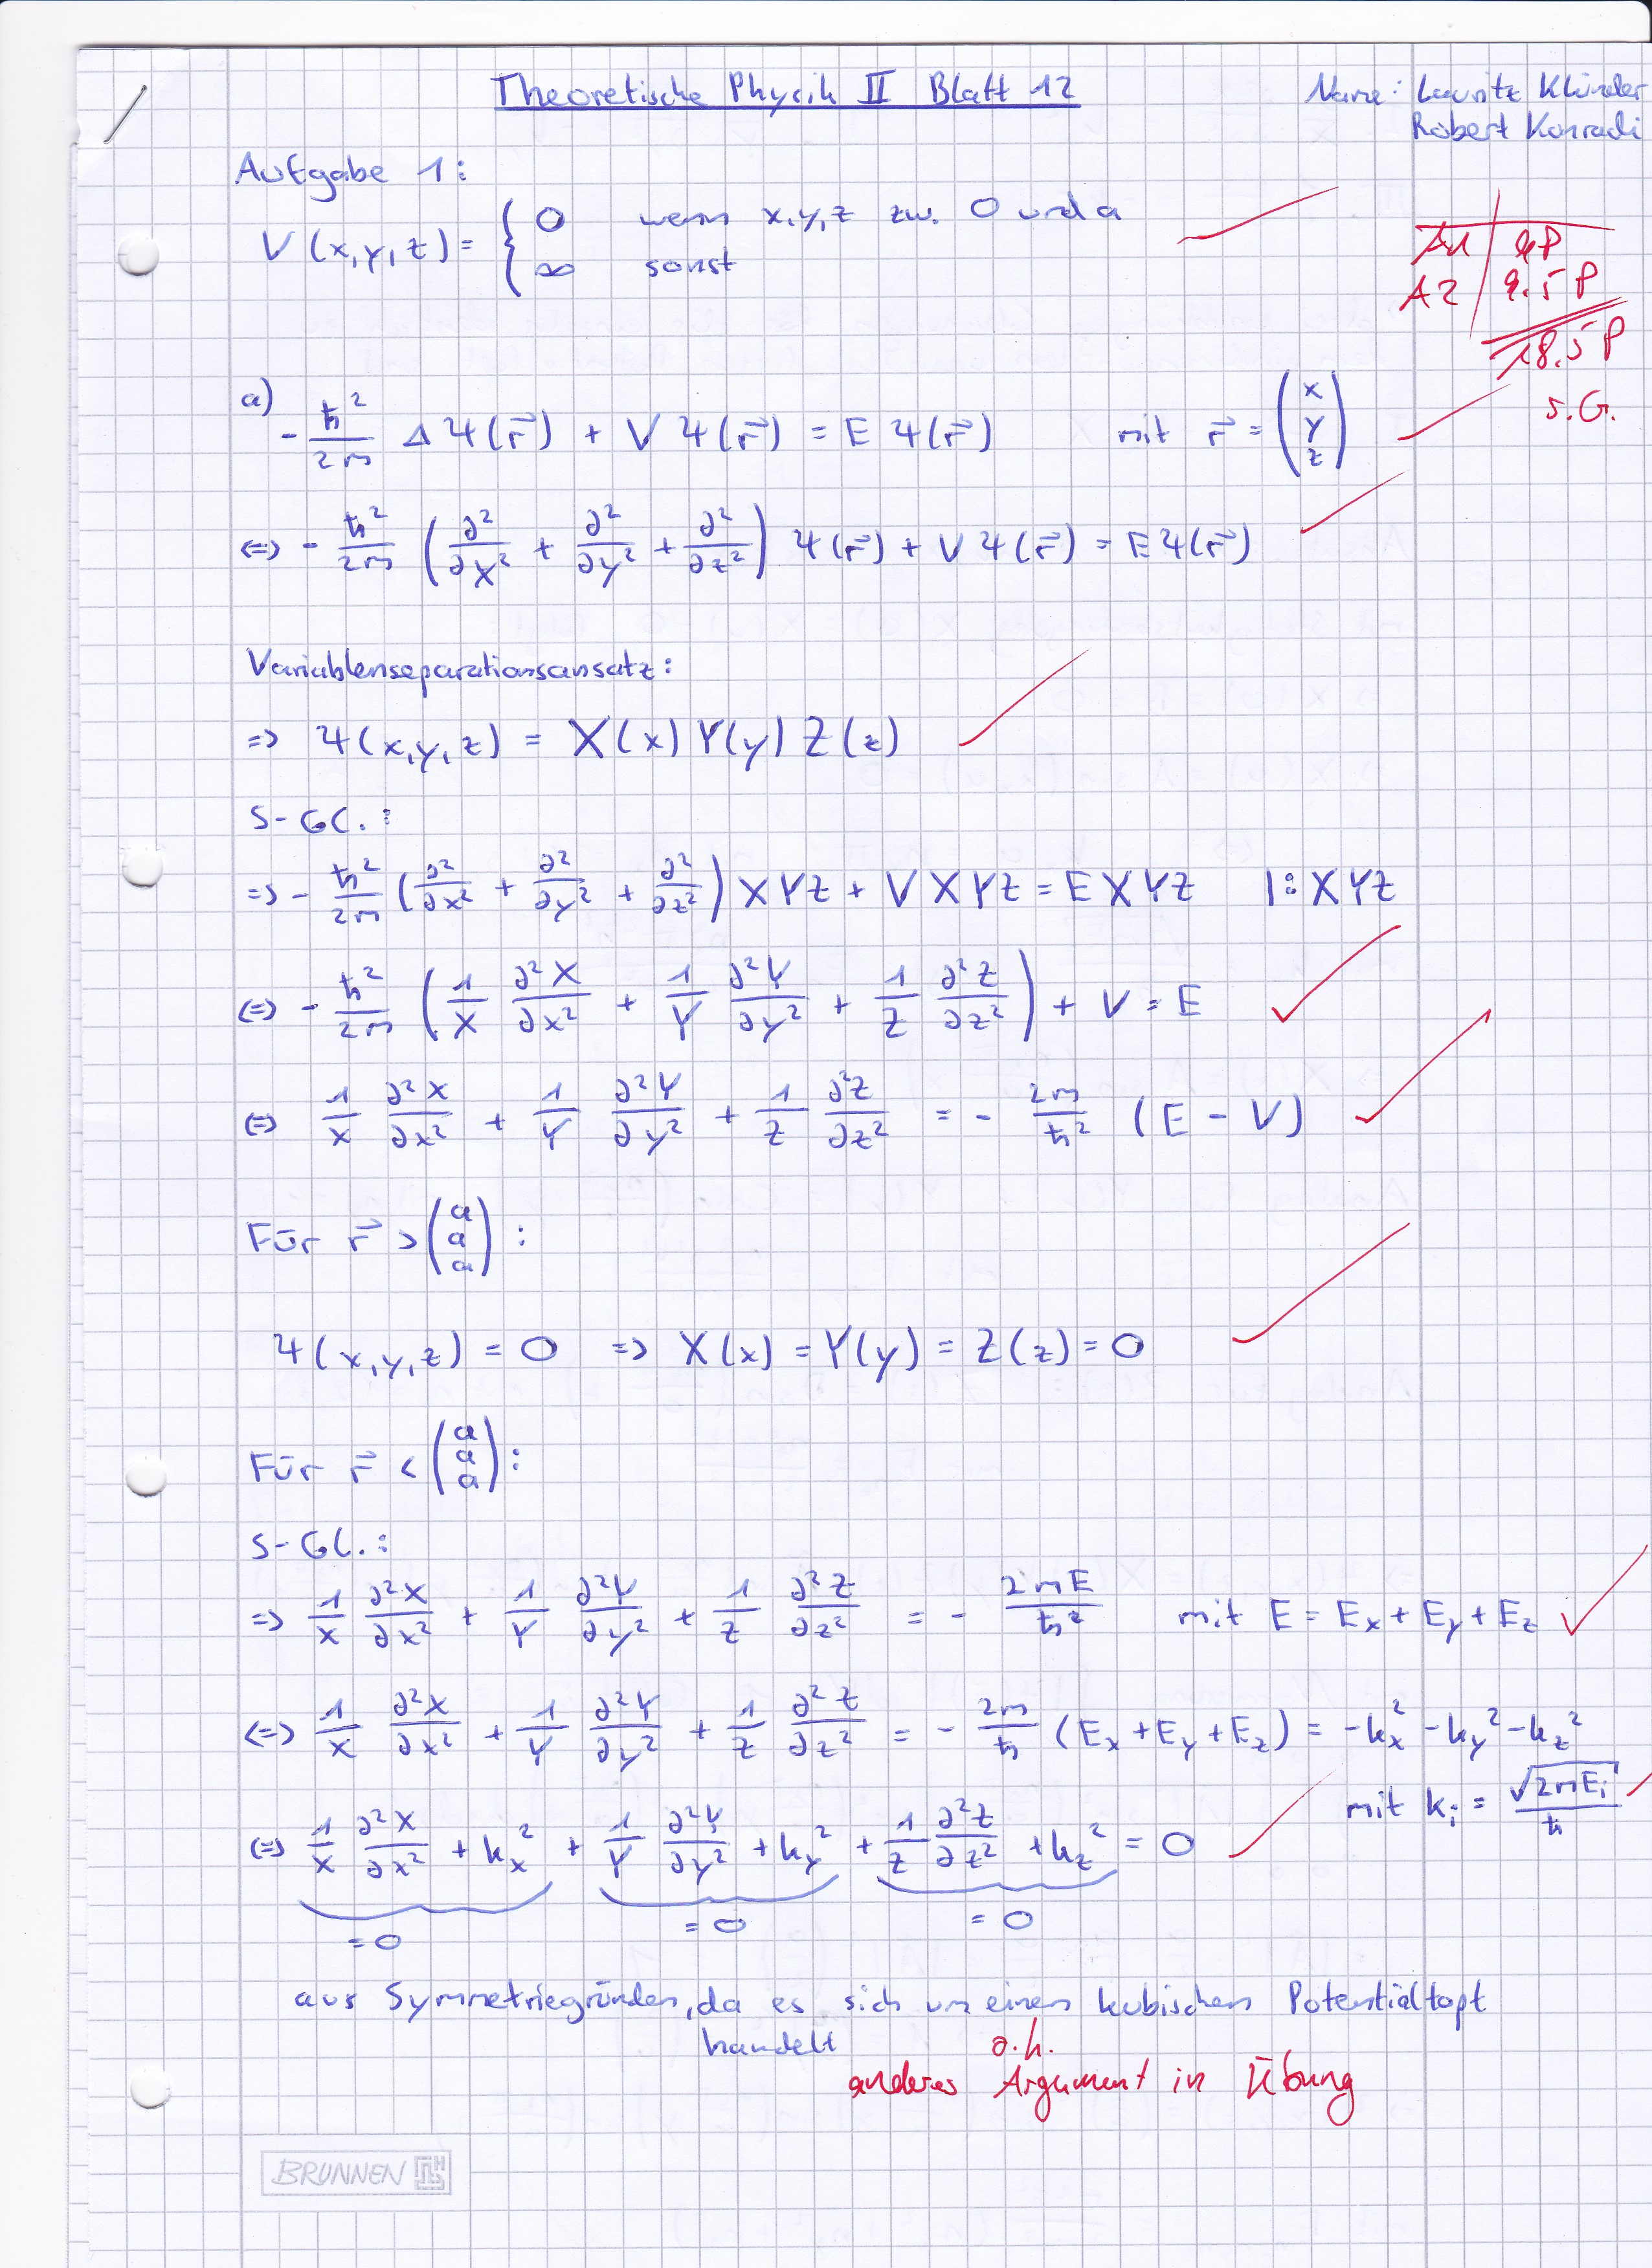 Theoretische Physik II Blatt 12
Name: Lauritz Klünder
Robert Konradi
Aufgabe 1:
V(x,y,z) = { 0 wenn x,y,z zw. 0 und a
∞ sonst
A1 | 9P
A2 | 9.5 P
18.5 P
s.G.
a) -ħ²/2m Δ Ψ(r⃗) + V Ψ(r⃗) = E Ψ(r⃗) mit r⃗ = (x y z)
<=> -ħ²/2m (∂²/∂x² + ∂²/∂y² + ∂²/∂z²) Ψ(r⃗) + V Ψ(r⃗) = E Ψ(r⃗)
Variablenseparationsansatz:
=> Ψ(x,y,z) = X(x) Y(y) Z(z)
S-Gl.:
=> -ħ²/2m (∂²/∂x² + ∂²/∂y² + ∂²/∂z²) XYZ + V XYZ = E XYZ |: XYZ
<=> -ħ²/2m (1/X ∂²X/∂x² + 1/Y ∂²Y/∂y² + 1/Z ∂²Z/∂z²) + V = E
<=> 1/X ∂²X/∂x² + 1/Y ∂²Y/∂y² + 1/Z ∂²Z/∂z² = - 2m/ħ² (E - V)
Für r⃗ > (a a a):
Ψ(x,y,z) = 0 => X(x) = Y(y) = Z(z) = 0
Für r⃗ < (a a a):
S-Gl.:
=> 1/X ∂²X/∂x² + 1/Y ∂²Y/∂y² + 1/Z ∂²Z/∂z² = - 2mE/ħ² mit E = Ex + Ey + Ez
<=> 1/X ∂²X/∂x² + 1/Y ∂²Y/∂y² + 1/Z ∂²Z/∂z² = - 2m/ħ (Ex + Ey + Ez) = -kx² - ky² - kz²
mit ki = √2mEi/ħ
<=> 1/X ∂²X/∂x² + kx² + 1/Y ∂²Y/∂y² + ky² + 1/Z ∂²Z/∂z² + kz² = 0
= 0 = 0 = 0
aus Symmetriegründen, da es sich um einen kubischen Potentialtopf
handelt
o.k.
anderes Argument in Übung
BRUNNEN